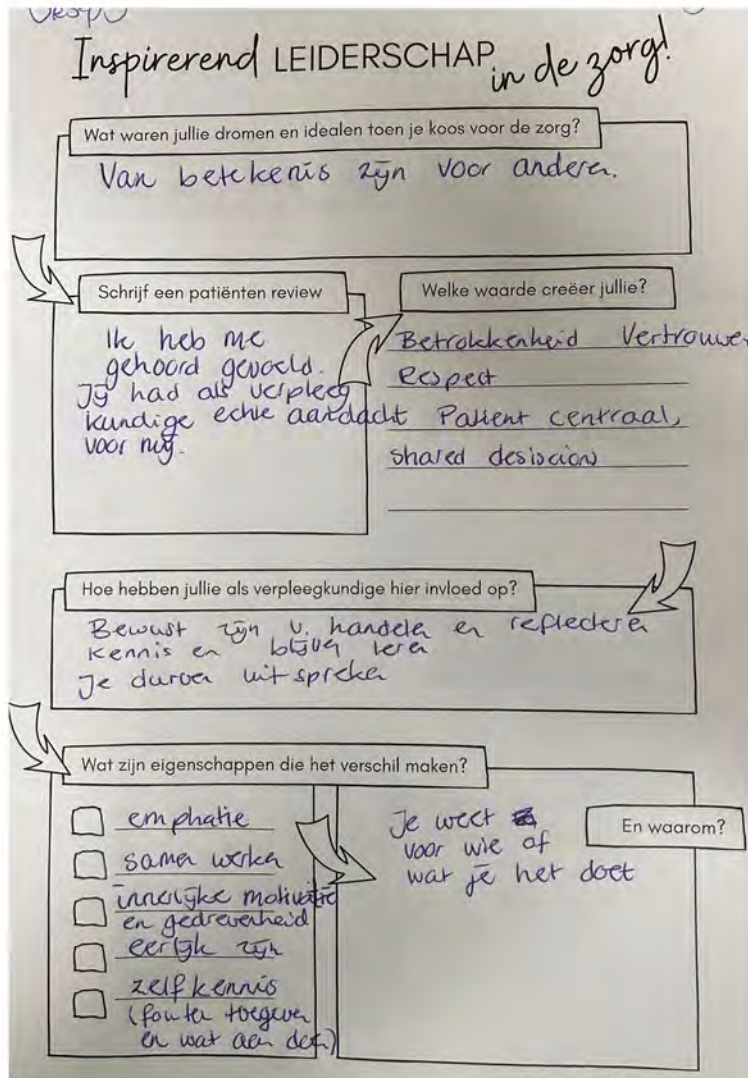 Inspirerend LEIDERSCHAP in de zorg!
Wat waren jullie dromen en idealen toen je koos voor de zorg?
Van betekenis zijn voor anderen.
Schrijf een patiënten review
Ik heb me
gehoord gevoeld.
Jij had als verpleeg
kundige echte aandacht
voor mij.
Welke waarde creëer jullie?
Betrokkenheid Vertrouwen
Respect
Patient centraal,
shared desision
Hoe hebben jullie als verpleegkundige hier invloed op?
Bewust zijn v. handelen en reflecteren
Kennis en blijven leren
Je durven uitspreken
Wat zijn eigenschappen die het verschil maken?
emphatie
samen werken
innerlijke motivatie
en gedrevenheid
eerlijk zijn
zelfkennis
(fouten toegeven
en wat aan doen)
En waarom?
Je weet
voor wie of
wat je het doet